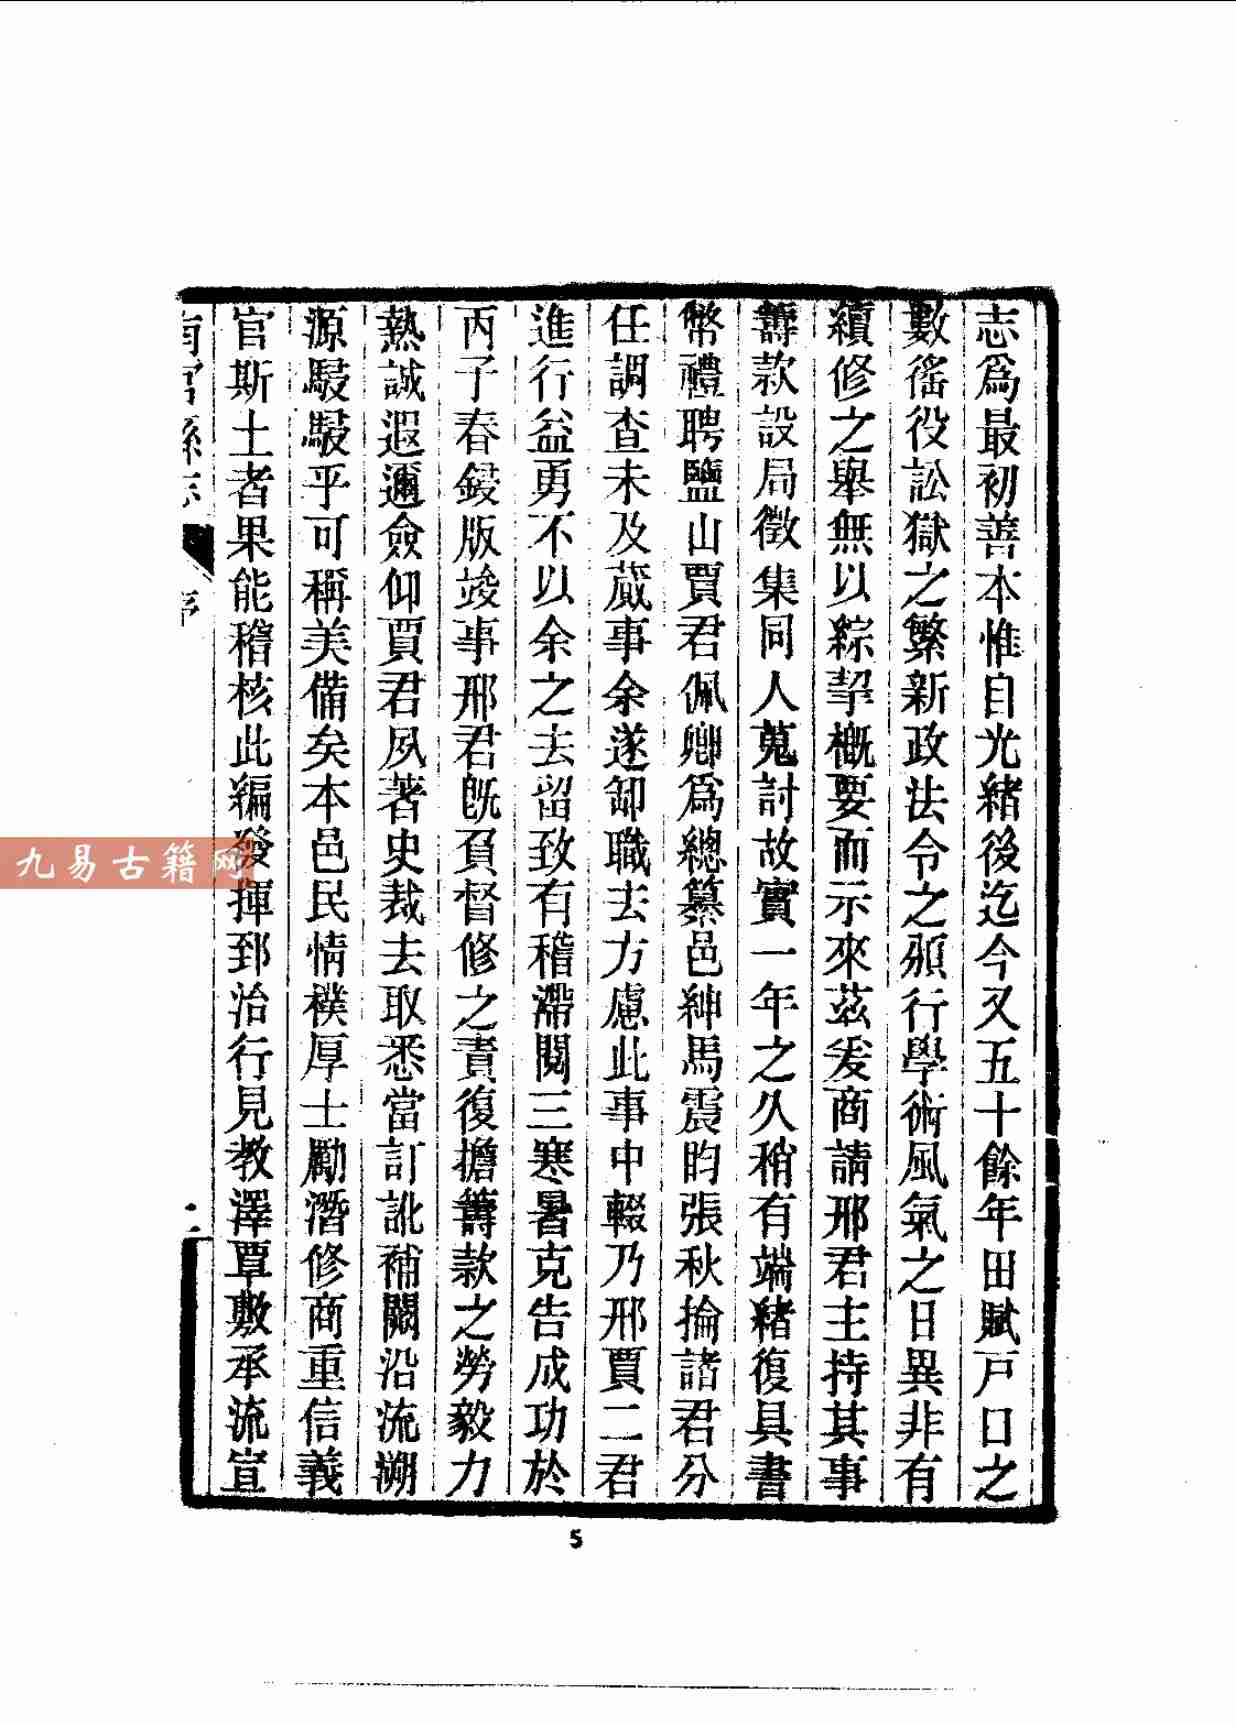 志爲最初善本惟自光緒後迄今又五十餘年田賦戶口之
數徭役訟獄之繁新政法令之頒行學術風氣之日異非有
續修之舉無以綜挈槪要而示來茲爰商請邢君主持其事
籌款設局徵集同人蒐討故實一年之久稍有端緒復具書
幣禮聘鹽山賈君佩卿爲總纂邑紳馬震昀張秋掄諸君分
任調查未及蕆事余遂卸職去方慮此事中輟乃邢賈二君
進行益勇不以余之去留致有稽滯閱三寒暑克告成功於
丙子春鋟版竣事邢君旣負督修之責復擔籌款之勞毅力
熱誠遐邇僉仰賈君夙著史裁去取悉當訂訛補闕沿流溯
源駸駸乎可稱美備矣本邑民情樸厚士勵潛修商重信義
官斯土者果能稽核此編發揮到治行見教澤覃敷承流宣
南宮縣志 序 二
5
九易古籍网